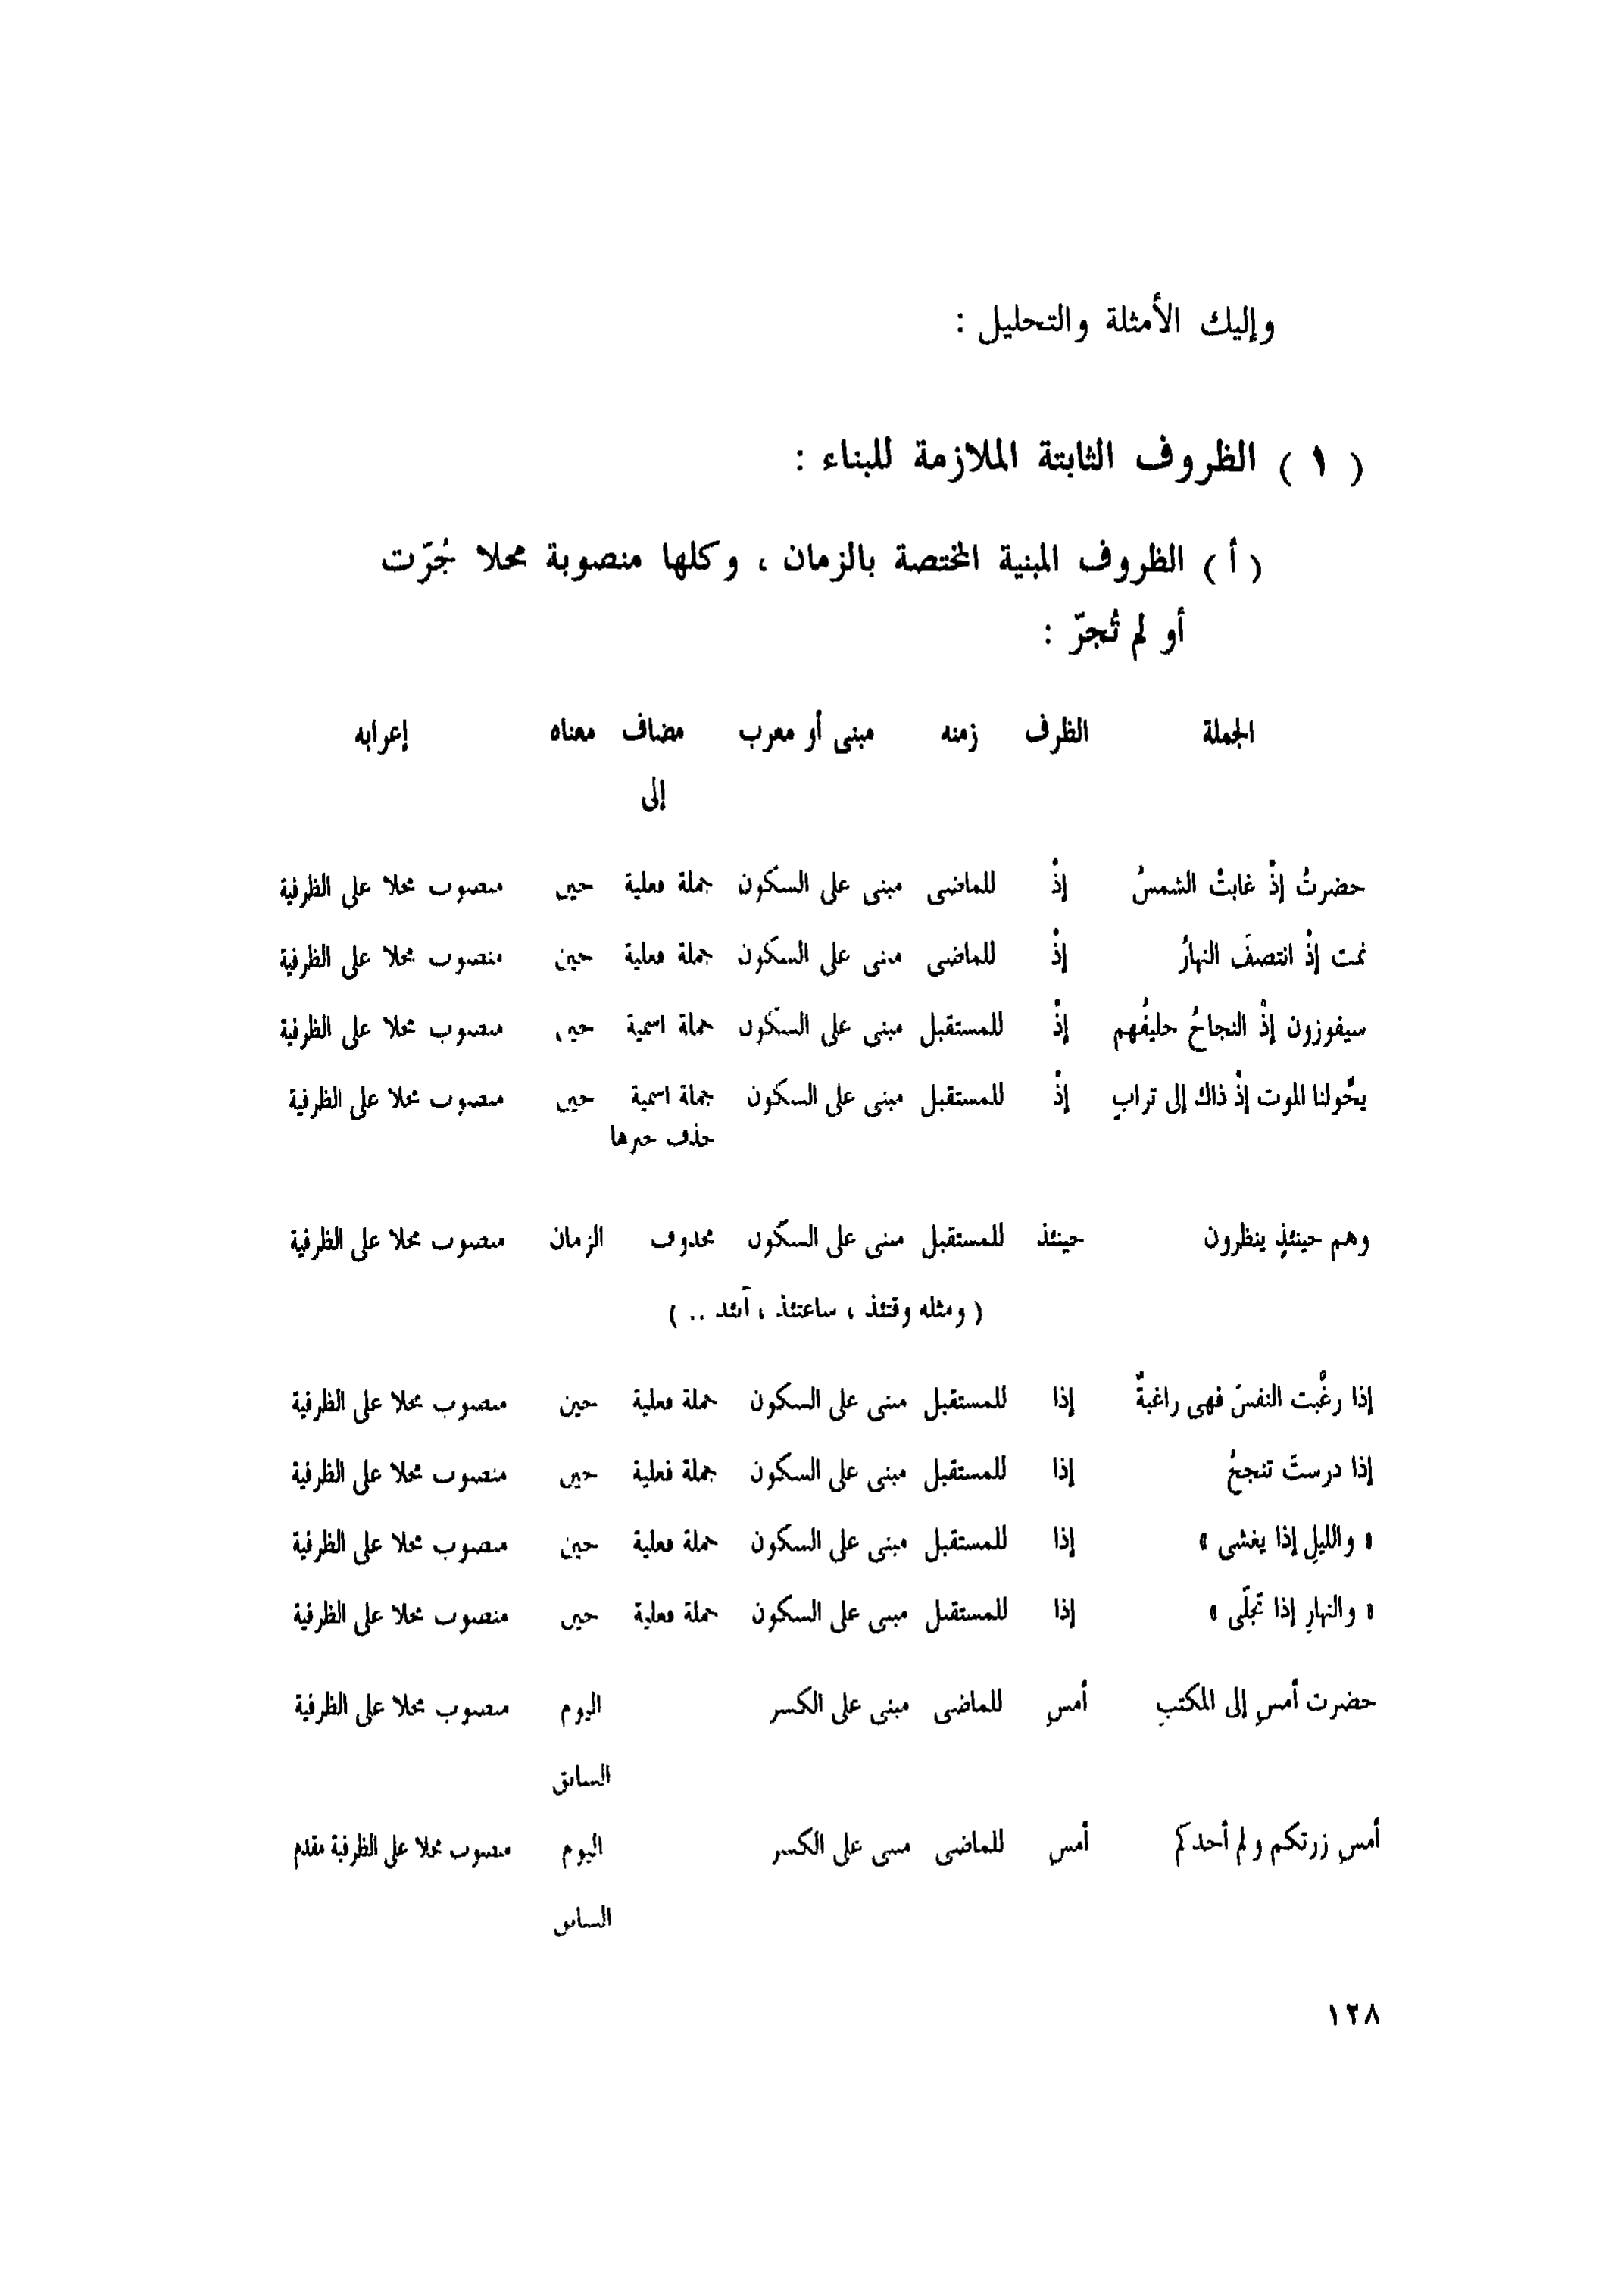 وإليك الأمثلة والتحليل :
( ١ ) الظروف الثابتة الملازمة للبناء :
( أ ) الظروف المبنية المختصة بالزمان ، وكلها منصوبة محلا جُرّت
أو لم تُجرّ :
الجملة الظرف زمنه مبنى أو معرب مضاف معناه إعرابه
إلى
حضرتُ إذْ غابتْ الشمسُ إذْ للماضى مبنى على السكون جملة فعلية حين منصوب محلا على الظرفية
نمت إذْ انتصفَ النهارُ إذْ للماضى مبنى على السكون جملة فعلية حين منصوب محلا على الظرفية
سيفوزون إذْ النجاحُ حليفُهم إذْ للمستقبل مبنى على السكون جملة اسمية حين منصوب محلا على الظرفية
يحّولنا الموت إذْ ذاك إلى ترابٍ إذْ للمستقبل مبنى على السكون جملة اسمية حين منصوب محلا على الظرفية
حذف خبرها
وهم حينئذٍ ينظرون حينئذ للمستقبل مبنى على السكون محذوف الزمان منصوب محلا على الظرفية
( ومثله وقتئذ ، ساعتئذ ، آنئذ .. )
إذا رغّبت النفسَ فهى راغبةٌ إذا للمستقبل مبنى على السكون جملة فعلية حين منصوب محلا على الظرفية
إذا درستَ تنجحُ إذا للمستقبل مبنى على السكون جملة فعلية حين منصوب محلا على الظرفية
« والليلِ إذا يغشى » إذا للمستقبل مبنى على السكون جملة فعلية حين منصوب محلا على الظرفية
« والنهارِ إذا تجلّى » إذا للمستقبل مبنى على السكون جملة فعلية حين منصوب محلا على الظرفية
حضرت أمسِ إلى المكتبِ أمسِ للماضى مبنى على الكسر اليوم منصوب محلا على الظرفية
السابق
أمسِ زرتكم ولم أجدكم أمسِ للماضى مبنى على الكسر اليوم منصوب محلا على الظرفية مقدم
السابق
١٢٨